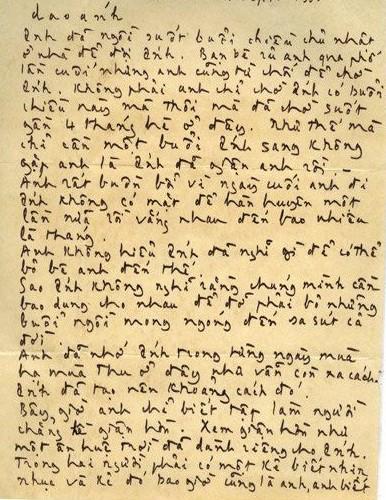 dao ánh
Anh đã ngồi suốt buổi chiều chủ nhật
ở nhà để đợi Ánh. Bạn bè rủ anh qua phố
lần cuối nhưng anh cũng từ chối để chờ
Ánh. Không phải anh chỉ chờ Ánh có buổi
chiều nay mà thôi mà đã chờ suốt
gần 4 tháng hè ở đây. Như thế mà
chỉ cần một buổi Ánh sang không
gặp anh là Ánh đã giận anh rồi
Anh rất buồn bã vì ngày cuối anh đi
Ánh không có mặt để hàn huyên một
lần nữa rồi vắng nhau đến bao nhiêu
là tháng.
Anh không hiểu Ánh đã nghĩ gì để có thể
bỏ bê anh đến thế.
Sao Ánh không nghĩ rằng chúng mình cần
bao dung cho nhau để đỡ phải bỏ những
buổi ngồi mong ngóng đến sa sút cả
đời
Anh đã nhớ Ánh trong từng ngày mưa
hạ mưa thu ở đây mà vẫn còn xa cách.
Ánh đã tạo nên khoảng cách đó.
Bây giờ anh chỉ biết tập làm người
chẳng giận hờn. Xem giận hờn như
một ân huệ trời đã dành riêng cho Ánh.
Trong hai người, phải có một kẻ biết nhịn
nhục và kẻ đó bao giờ cũng là anh, anh biết